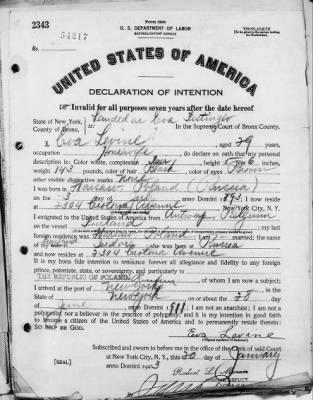 2343
FORM 2203
U. S. DEPARTMENT OF LABOR
NATURALIZATION SERVICE
TRIPLICATE
[To be given to the person making the Declaration]
No. 54217
UNITED STATES OF AMERICA
DECLARATION OF INTENTION
Invalid for all purposes seven years after the date hereof
Landed as Eva
State of New York,
County of Bronx, ss: In the Supreme Court of Bronx County.
I, Eva Levine, aged 29 years,
occupation Housewife, do declare on oath that my personal
description is: Color white, complexion fair, height 5 feet inches,
weight 143 pounds, color of hair Black, color of eyes Brown
other visible distinctive marks None
I was born in Warsaw Poland (Russia)
on the 3 day of, anno Domini 1893; I now reside
at 2304 Crotona Avenue, New York City, N. Y.
I emigrated to the United States of America from Antwerp Belgium
on the vessel; my last
foreign residence was Warsaw Poland; I am married; the name
of my is Isidore; he was born at Russia
and now resides at 2304 Crotona Avenue
It is my bona fide intention to renounce forever all allegiance and fidelity to any foreign
prince, potentate, state, or sovereignty, and particularly to
THE REPUBLIC OF POLAND, of whom I am now a subject;
I arrived at the port of New York, in the
State of New York, on or about the 28 day
of June, anno Domini 1911; I am not an anarchist; I am not a
polygamist nor a believer in the practice of polygamy; and it is my intention in good faith
to become a citizen of the United States of America and to permanently reside therein:
SO HELP ME GOD.
Eva Levine
(Original signature of declarant)
Subscribed and sworn to before me in the office of the Clerk of said Court
[SEAL] at New York City, N. Y., this 30 day of January
anno Domini 1923